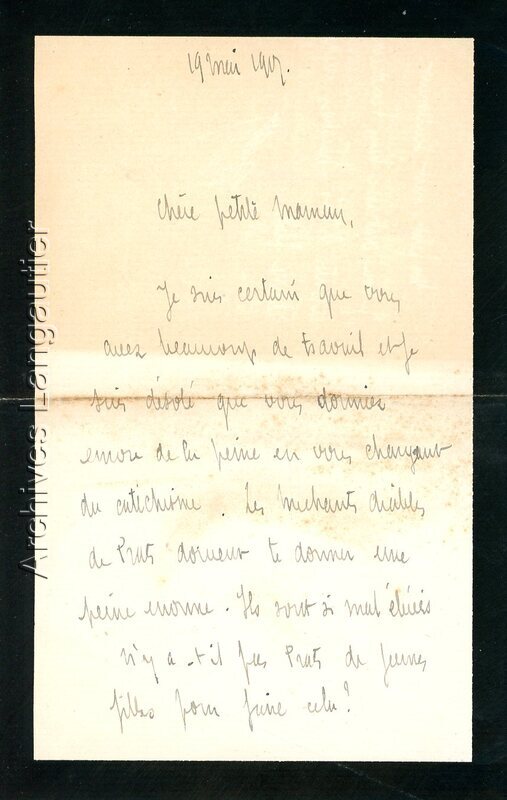 19 mai 1907.
Chère petite Maman,
Je suis certain que vous
avez beaucoup de travail et je
suis désolé que vous donniez
encore de la peine en vous chargeant
du catéchisme. Les méchants diables
de Prats doivent te donner une
peine enorme. Ils sont si mal élevés
n'y a-t-il pas Prats de jeunes
filles pour faire cela?
Archives Langautier